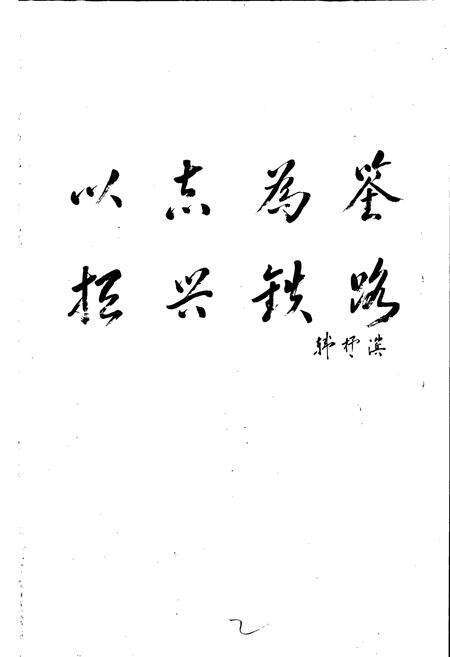 以志为鉴
振兴铁路
韩杼滨
2